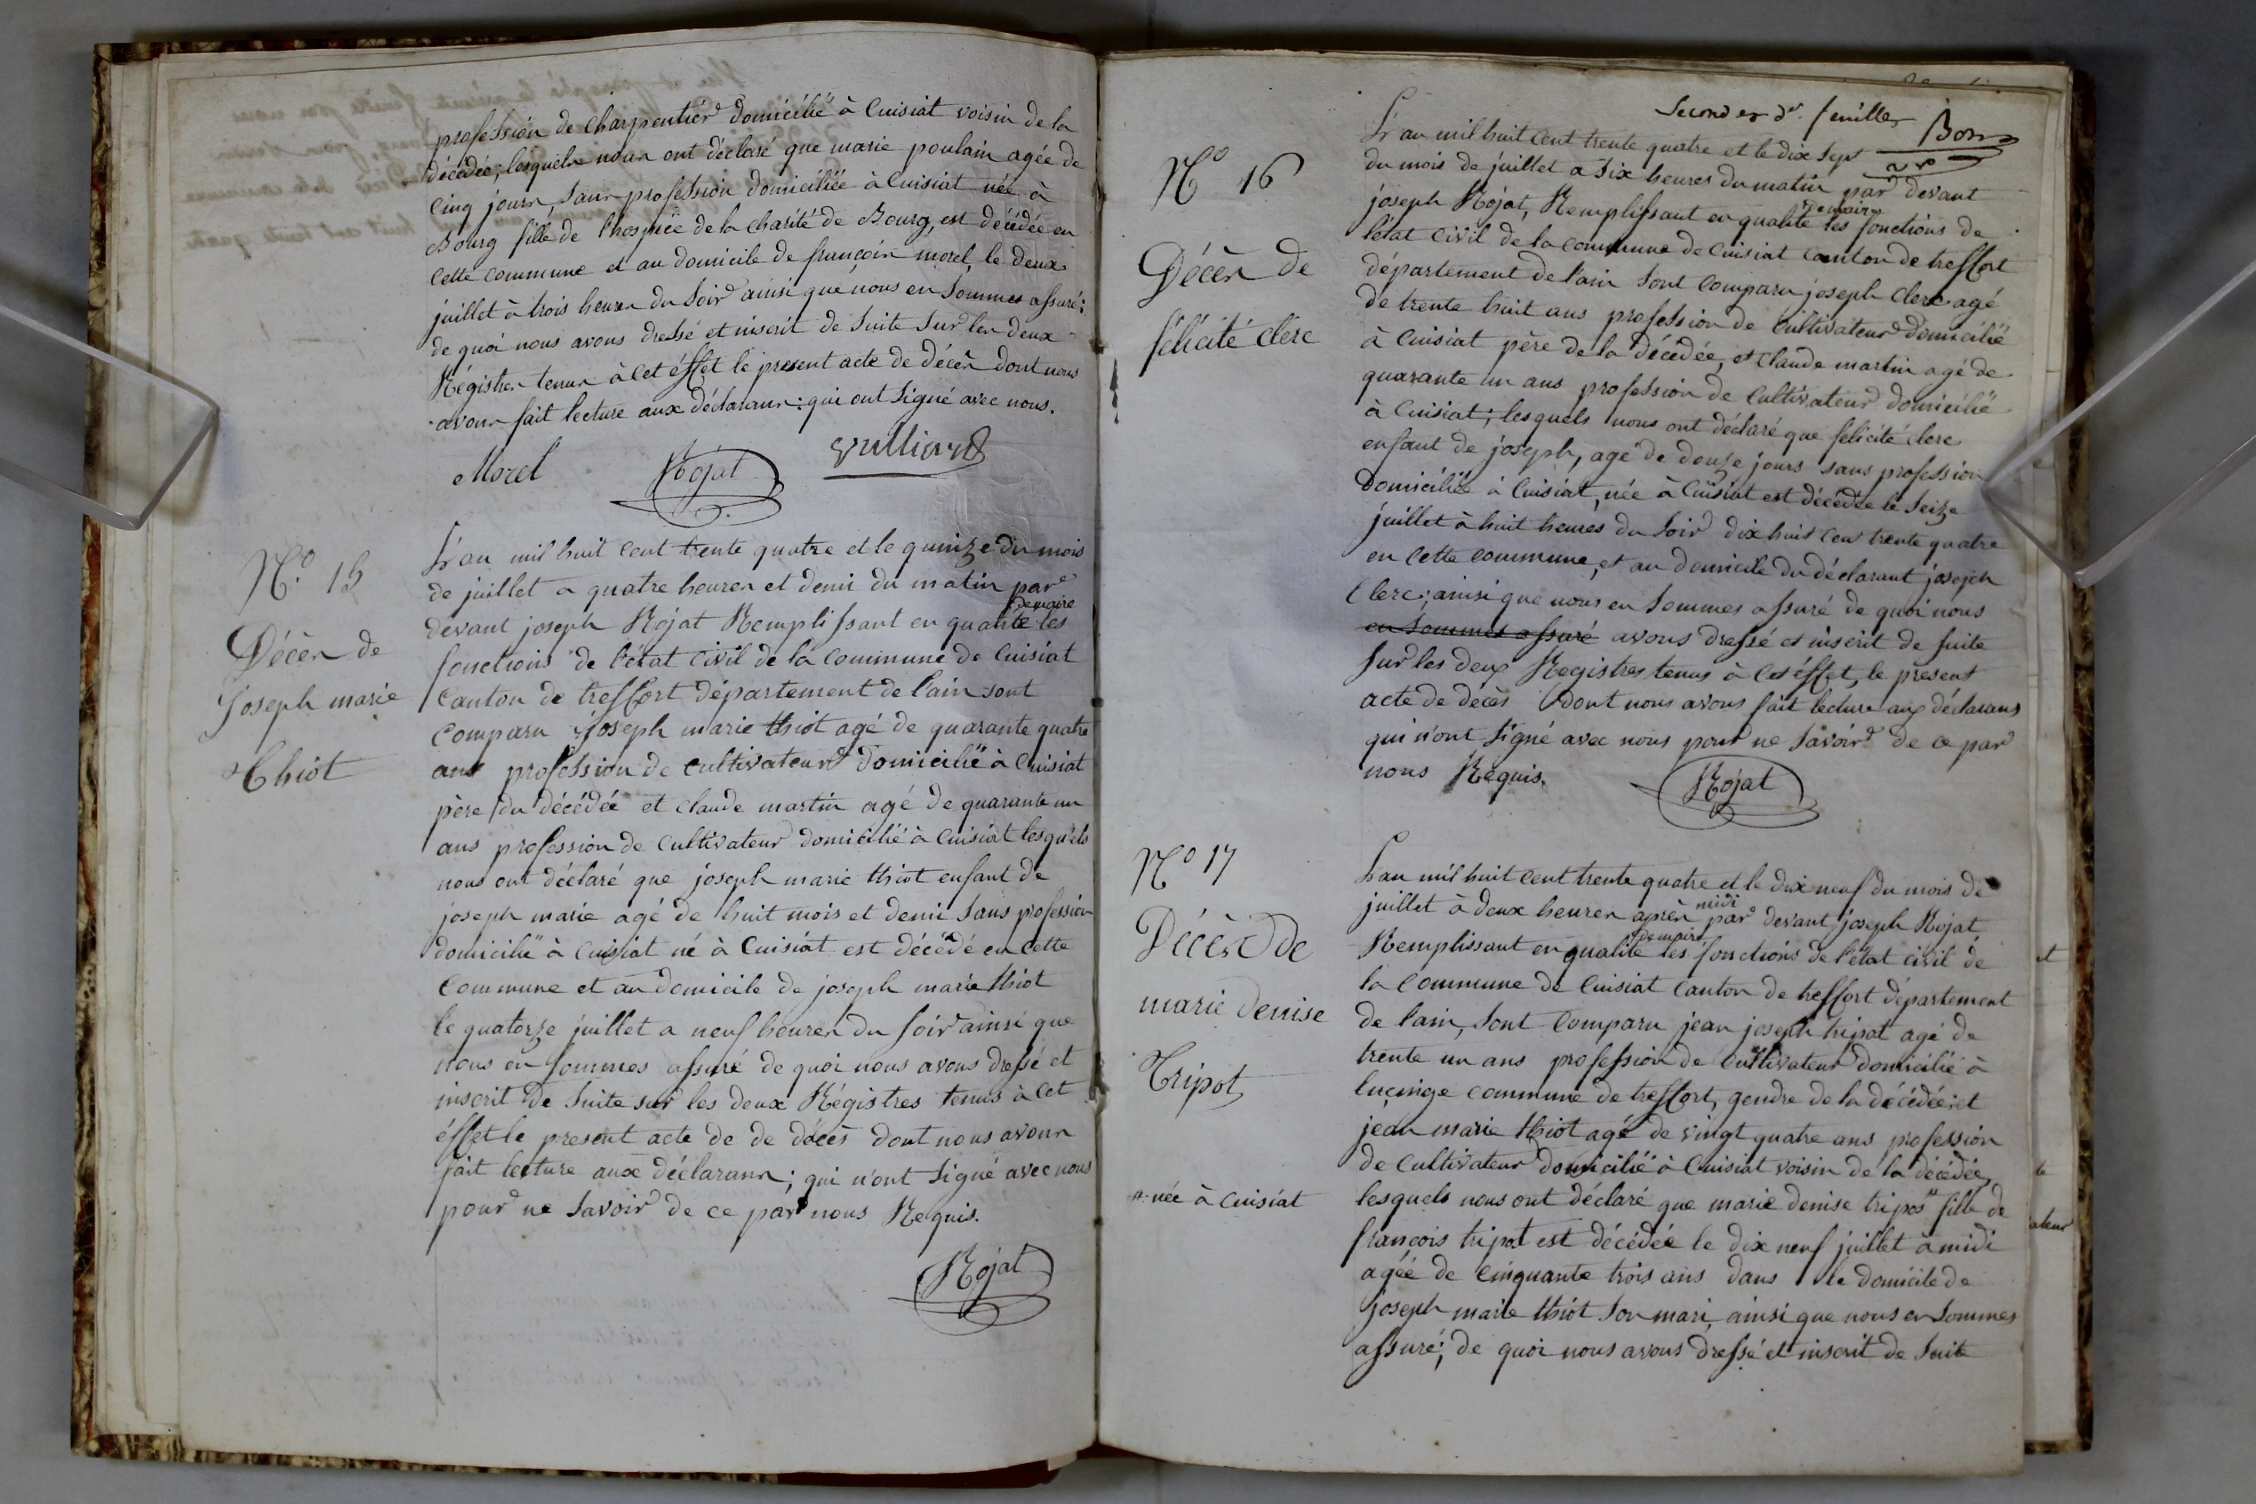 profession de charpentier domicilié à Cuisiat voisin de la
décédée; lesquels nous ont déclaré que marie poulain agée de
cinq jours, sans profession domiciliée à Cuisiat née à
Bourg fille de l'hospice de la charité de Bourg, est décédée en
cette commune et au domicile de françois morel, le deux
juillet à trois heures du soir ainsi que nous en sommes assuré;
de quoi nous avons dressé et inscrit de suite sur les deux
Régistres tenus à cet éffet le present acte de décès dont nous
avons fait lecture aux déclarans: qui ont signé avec nous.
Morel Rojat Vulliard
N.º 15
Décès de
Joseph marie
Thiot
L'an mil huit cent trente quatre et le quinze du mois
de juillet a quatre heures et demi du matin par
devant joseph Rojat Remplissant en qualité de maire les
fonctions de l'état civil de la commune de Cuisiat
Canton de treffort département de l'ain sont
comparu joseph marie thiot agé de quarante quatre
ans profession de cultivateur domicilié à Cuisiat
père du décédée et claude martin agé de quarante un
ans profession de cultivateur domicilié à Cuisiat lesquels
nous ont déclaré que joseph marie thiot enfant de
joseph marie agé de huit mois et demi sans profession
domicilié à Cuisiat né à Cuisiat est décédé en cette
Commune et au domicile de joseph marie thiot
le quatorze juillet a neuf heures du soir ainsi que
nous en sommes assuré de quoi nous avons dressé et
inscrit de suite sur les deux Régistres tenus à cet
éffet le present acte de de décès dont nous avons
fait lecture aux déclarans; qui n'ont signé avec nous
pour ne savoir de ce par nous Requis.
Rojat
Second et d.er feuillet Bon
N.º 16
Décès de
félicité clerc
L'an mil huit cent trente quatre et le dix sept
du mois de juillet a six heures du matin par devant
joseph Rojat, Remplissant en qualité de maire les fonctions de
l'état civil de la commune de Cuisiat canton de treffort
département de l'ain sont comparu joseph clerc agé
de trente huit ans profession de cultivateur domicilié
à Cuisiat père de la décédée, et claude martin agé de
quarante un ans profession de cultivateur domicilié
à Cuisiat; lesquels nous ont déclaré que félicité clerc
enfant de joseph, agé de douze jours sans profession
domiciliée à Cuisiat, née à Cuisiat est décédée le seize
juillet à huit heures du soir dix huit cent trente quatre
en cette commune, et au domicile du déclarant joseph
Clerc; ainsi que nous en sommes assuré de quoi nous
en sommes assuré avons dressé et inscrit de suite
sur les deux Registres tenus à cet éffet, le present
acte de décès dont nous avons fait lecture aux déclarans
qui n'ont signé avec nous pour ne savoir de ce par
nous Requis.
Rojat
Nº 17
Décès de
marie denise
Tripot
née à Cuisiat
L'an mil huit cent trente quatre et le dix neuf du mois de
juillet à deux heures après midi par devant joseph Rojat
Remplissant en qualité de maire les fonctions de l'état civil de
la commune de Cuisiat canton de treffort département
de l'ain, sont comparu jean joseph tripot agé de
trente un ans profession de cultivateur domicilié à
lucinge commune de treffort, gendre de la décédée; et
jean marie thiot agé de vingt quatre ans profession
de cultivateur domicilié à Cuisiat voisin de la décédée,
lesquels nous ont déclaré que marie denise tripot fille de
françois tripot est décédée le dix neuf juillet à midi
agée de cinquante trois ans dans le domicile de
joseph marie thiot son mari ainsi que nous en sommes
assuré; de quoi nous avons dressé et inscrit de suite